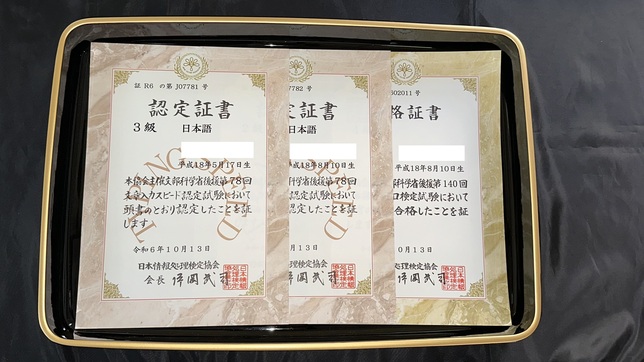 証 R6 の第 J07781 号
認定証書
3級 日本語
平成18年5月17日生
本協会主催文部科学省後援第78回
文章入力スピード認定試験において
頭書のとおり認定したことを証
します
令和6年10月13日
日本情報処理検定協会
会長
TYPING SPEED
7782 号
定証書
日本語
平成18年8月10日生
科学省後援第78回
ード認定試験において
認定したことを証
10月13日
処理検定協会
602011 号
格証書
平成18年8月10日生
部科学省後援第140回
ロ検定試験において
合格したことを証
10月13日
処理検定協会